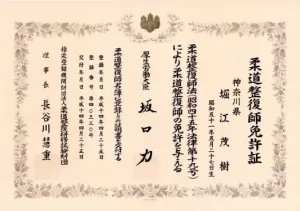 柔道整復師免許証
神奈川県
堀江茂樹
昭和五十一年五月二十七日生
柔道整復師法(昭和四十五年法律第十九号)
により柔道整復師の免許を与える
厚生労働大臣 坂口力
柔道整復師名簿に登録し
登録年月日 平成十四年四月二十五日
登録番号
交付年月日 平成十四年四月二十五日
指定登録機関財団法人柔道整復研修試験財団
理事長 長谷川慧重